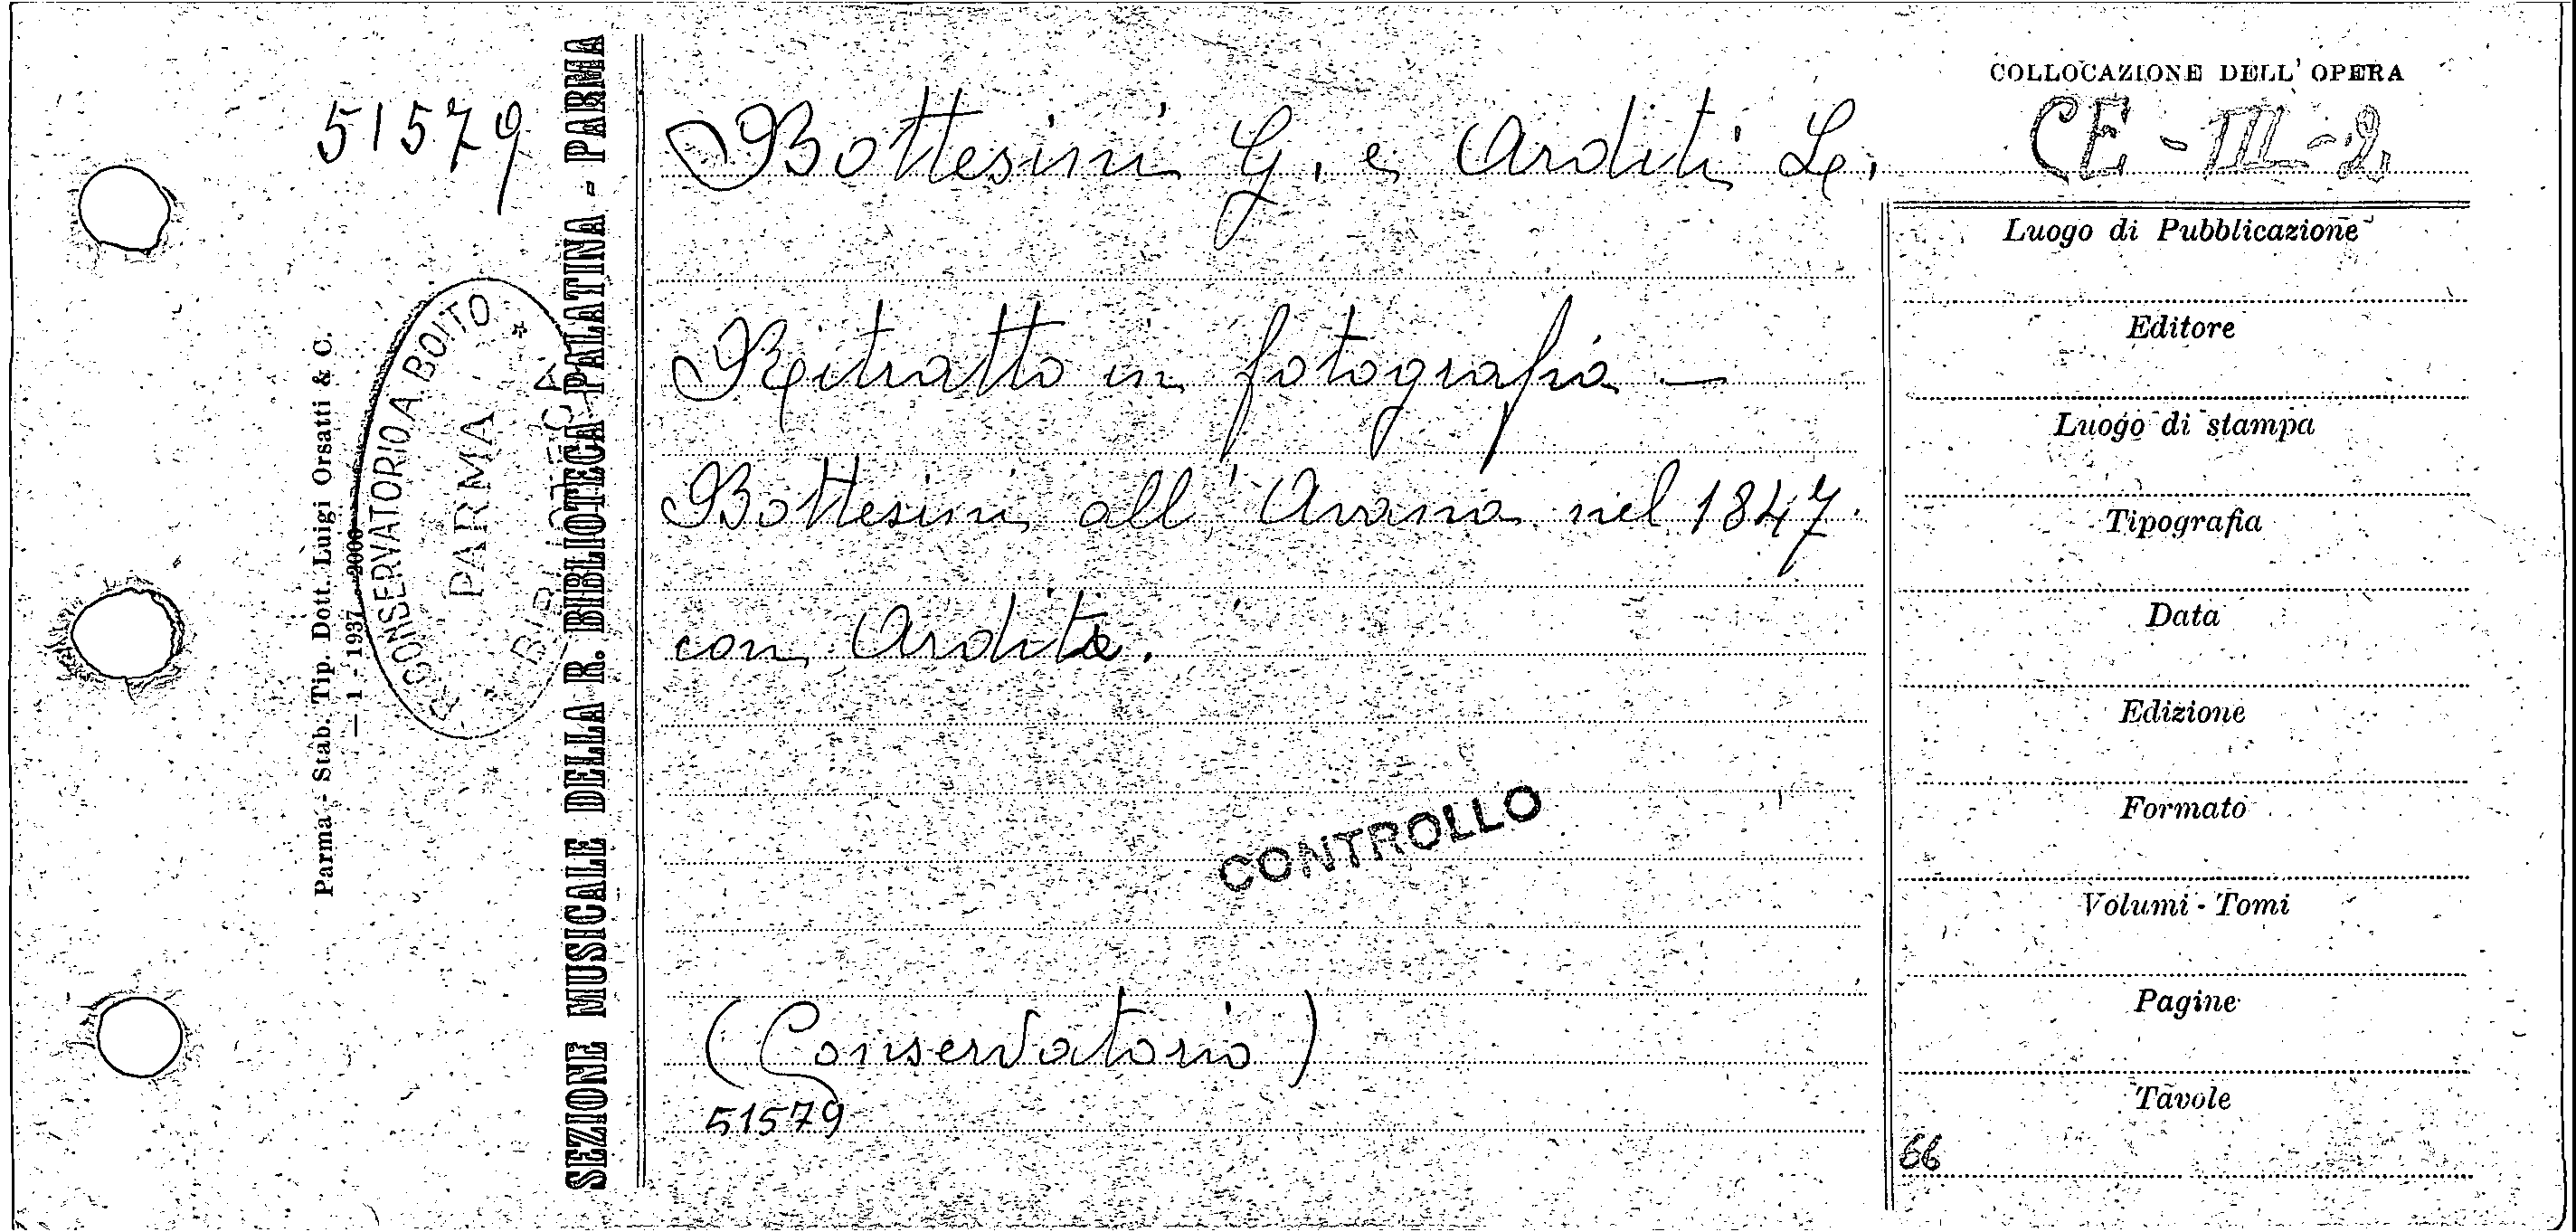 51579
Parma - Stab. Tip. Dott. Luigi Orsatti & C.
— 1 - 1937 - 2000
CONSERVATORIO A. BOITO
PARMA
SEZIONE MUSICALE DELLA R. BIBLIOTECA PALATINA - PARMA
Bottesini G. e Arditi L.
Ritratto in fotografia —
Bottesini all'Avana nel 1847.
con Arditi.
CONTROLLO
(Conservatorio)
51579
COLLOCAZIONE DELL'OPERA
CE - III - 2
Luogo di Pubblicazione
Editore
Luogo di stampa
Tipografia
Data
Edizione
Formato
Volumi - Tomi
Pagine
Tavole
66